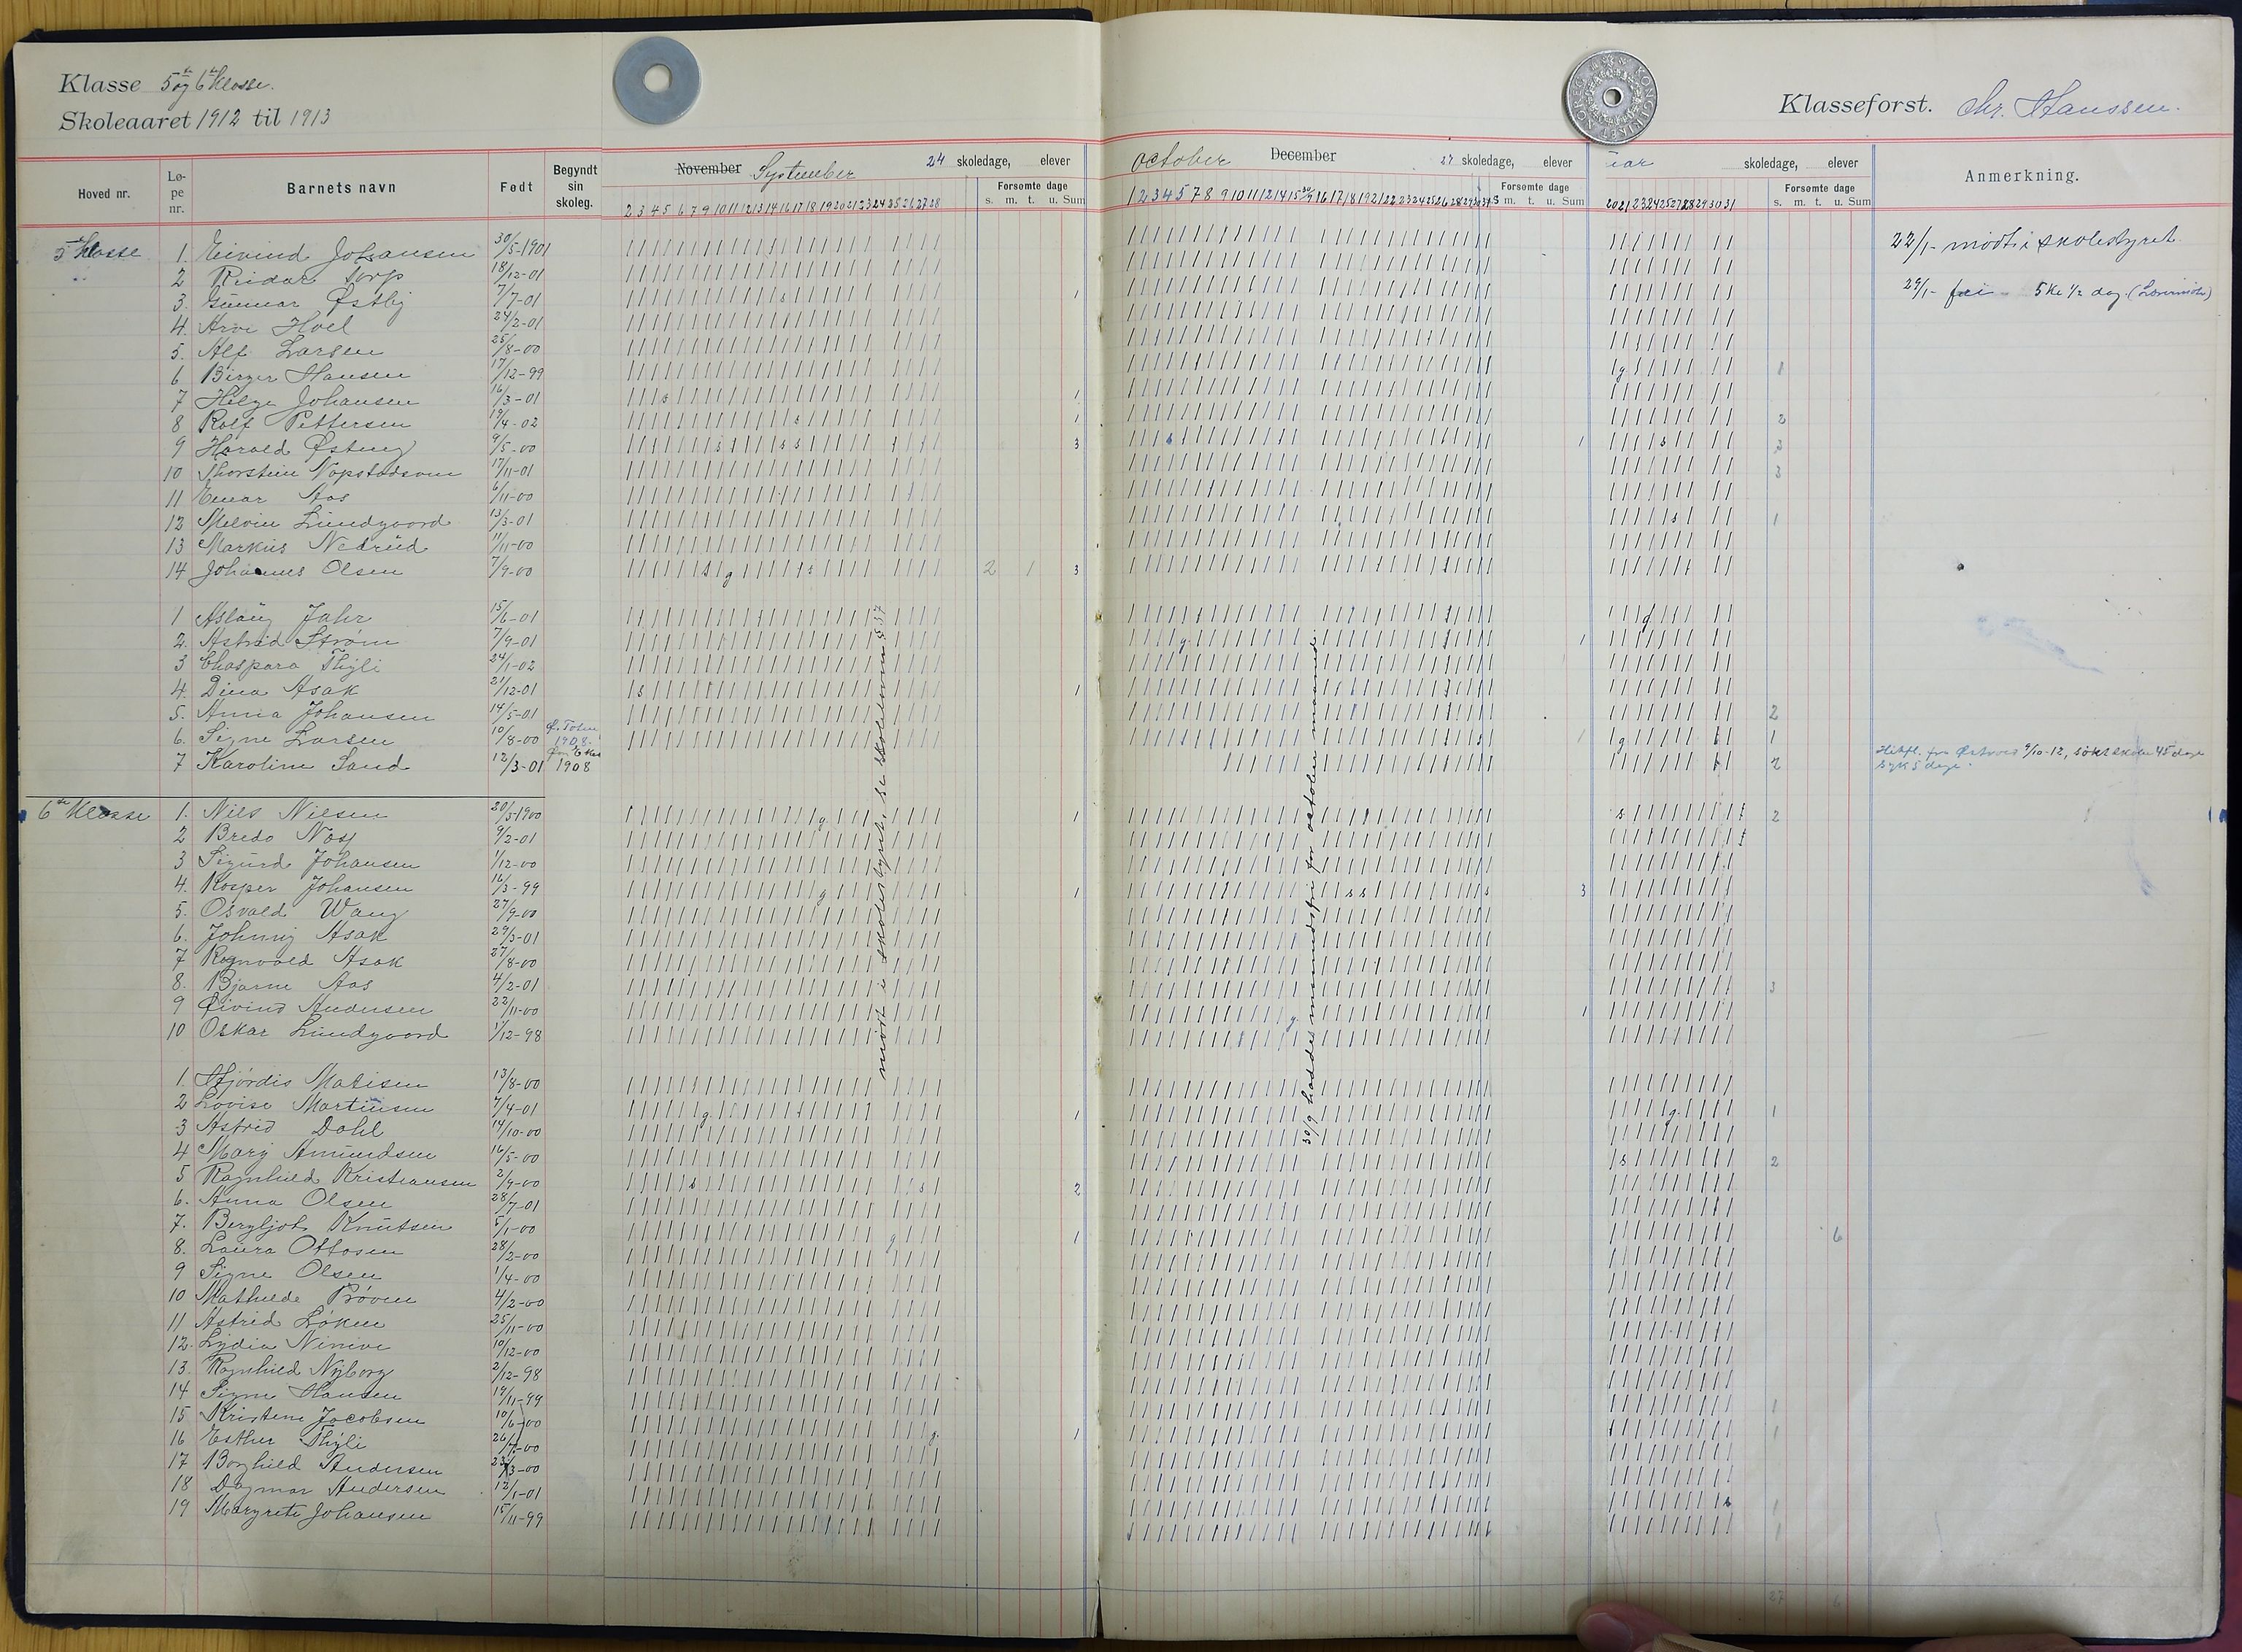 Klasse 5te og 6te Klasse.
Skoleaaret 1912 til 1913
Klasseforst. Chr. Hanssen.
KONGERIKET NORGE
Hoved nr.
Lø-pe nr.
Barnets navn
Født
Begyndt sin skoleg.
November September 24 skoledage, elever
Forsømte dage
s. m. t. u. Sum
October December 27 skoledage, elever
Forsømte dage
s m. t. u. Sum
uar skoledage, elever
Forsømte dage
s. m. t. u. Sum
Anmerkning.
2 3 4 5 6 7 9 10 11 12 13 14 16 17 18 19 20 21 23 24 25 26 27 28
1 2 3 4 5 7 8 9 10 11 12 14 15 30/9 16 17 18 19 21 22 23 24 25 26 28 29 30 31
20 21 23 24 25 27 28 29 30 31
5te Klasse 1. Eivind Johansen 30/5-1901 22/1- mødt i skolestyret.
2 Reidar Torp 18/12-01
3. Gunnar Østby 7/7-01 1 29/1- fri 5 kl 1/2 dag.
4. Arve Hoel 24/2-01
5. Alf Larsen 25/8-00
6 Birger Hansen 17/12-99 1
7 Helge Johansen 16/3-01 1
8 Rolf Pettersen 19/4-02 1 2
9 Harald Østeng 9/5-00 3 1 3
10 Thorstein Nopstadsven 17/11-01 3
11 Einar Aas 6/11-00
12 Melvin Lundgaard 13/3-01 1
13 Markus Nedrud 11/11-00
14 Johannes Olsen 7/9-00 2 1 3
1 Aslaug Jahr 15/6-01
2. Astrid Strøm 7/9-01 1
3 Chaspara Thyli 24/1-02
4. Dina Asak 21/12-01 1
5. Anna Johansen 14/5-01 2
6. Signe Larsen 10/8-00 1908 1 1
7 Karoline Sand 12/3-01 1908 2 9/10-12, søkt skole 45 dage
syk 5 dage.
mødt i skolestyret, se skoleloven § 37
30/9 haddes maanedsfri for october maaned.
6te Klasse 1. Nils Nilsen 20/5-1900 1 2
2 Bredo Næs 9/2-01
3 Sigurd Johansen 1/12-00
4. Kasper Johansen 16/3-99 1 3
5. Osvald Wang 27/9-00
6. Johnny Asak 29/3-01
7 Ragnvald Asak 27/8-00
8. Bjarne Aas 4/2-01 3
9 Øivind Andersen 22/11-00 1
10 Oskar Lundgaard 1/12-98
1. Hjørdis Matisen 13/8-00
2 Lovise Martinsen 7/4-01 1 1
3 Astrid Dahl 14/10-00
4 Mary Amundsen 16/5-00 2
5 Ragnhild Kristiansen 2/9-00 2
6. Anna Olsen 28/7-01
7. Bergljot Knutsen 5/1-00 1 6
8. Laura Ottosen 28/2-00
9 Signe Olsen 1/4-00
10 Mathilde Prøven 4/2-00
11 Astrid Løken 25/11-00
12. Lydia Ninive 10/12-00
13. Ragnhild Nyborg 2/12-98
14 Signe Hansen 19/11-99
15 Kristine Jacobsen 10/6-00 1
16 Esther Thyli 26/7-00 1 1
17 Borghild Andersen 23/3-00
18 Dagmar Andersen 12/1-01 1
19 Margrete Johansen 15/11-99 1
27 6